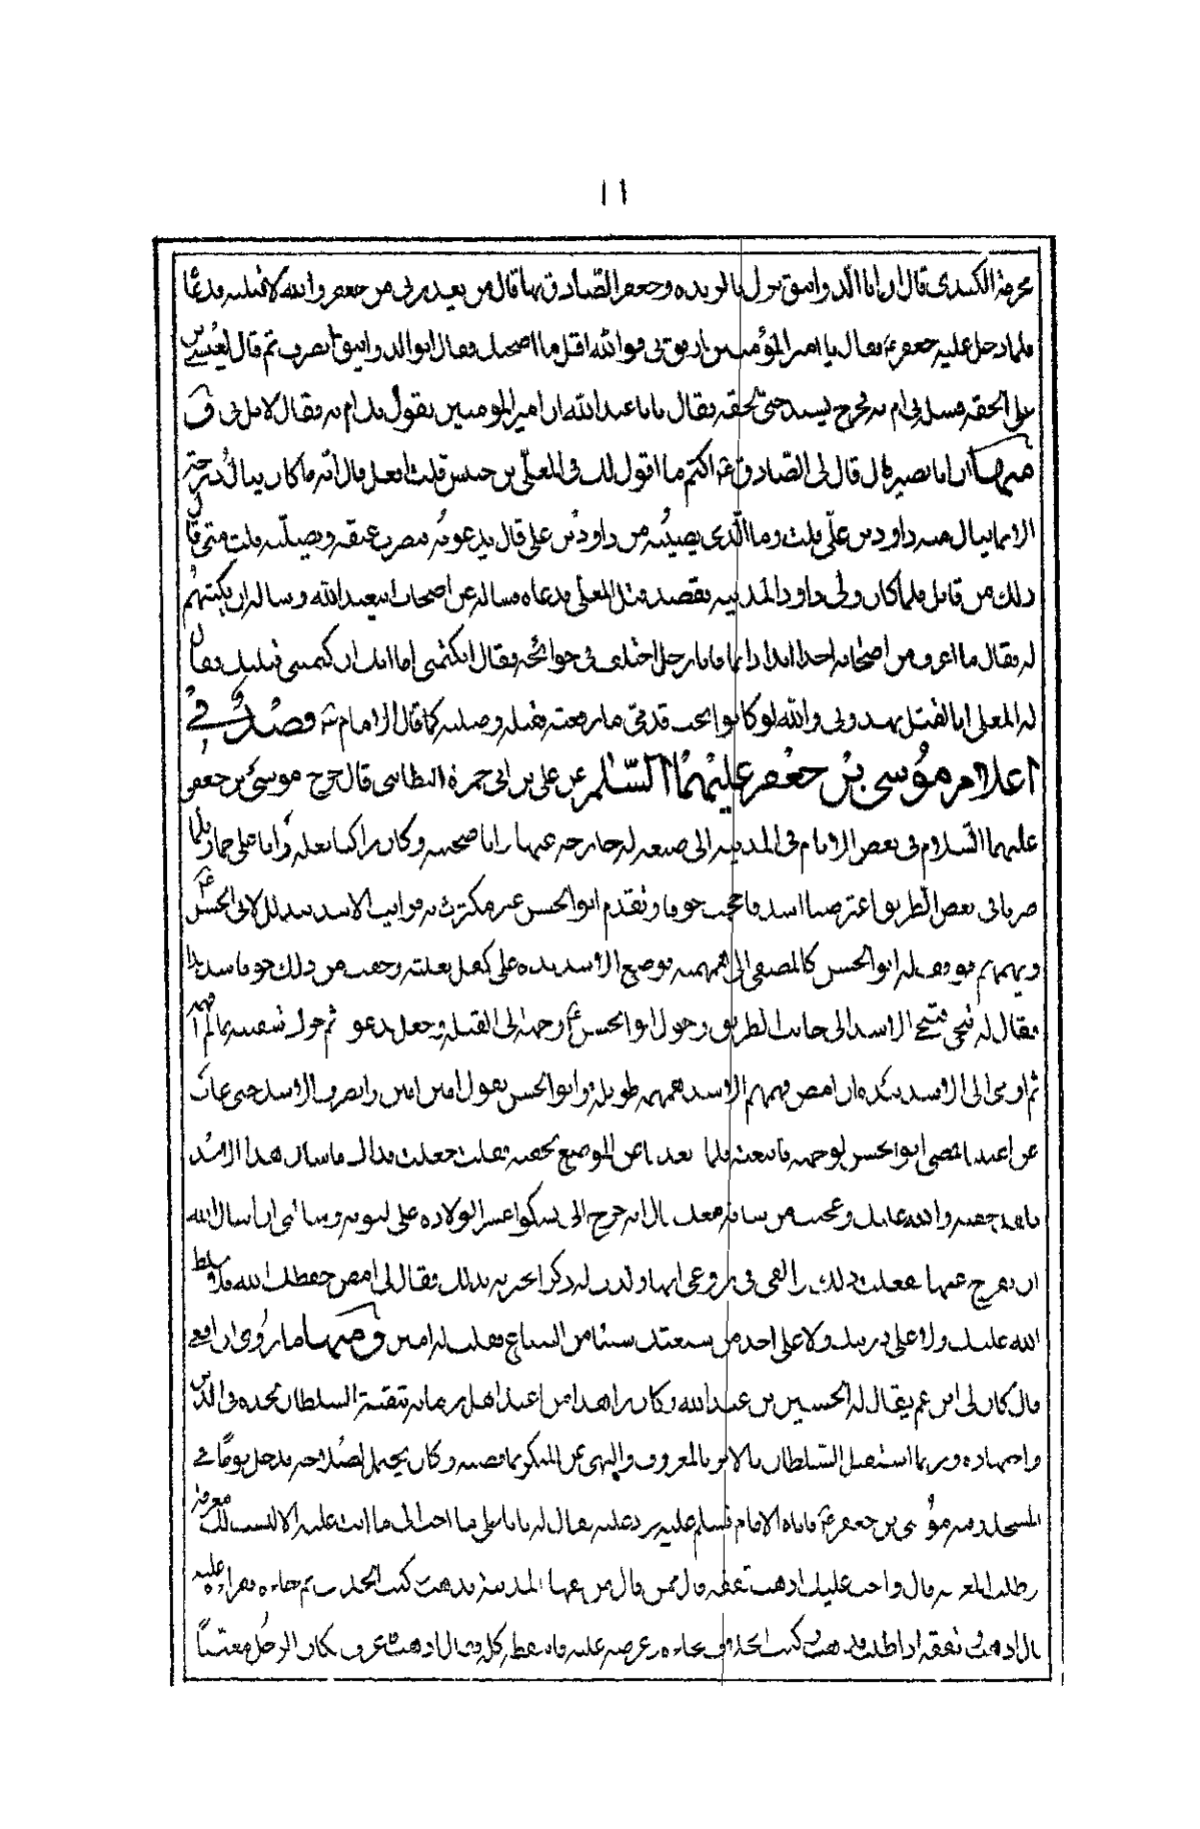 ١١
الكندى قال ان ابا الدوانيق نزل بالربذه وجعفر الصادق بها قال من يعذرنى من جعفر والله لاقتلنه فدعا
فلما دخل عليه جعفر ع فقال يا امير المؤمنين ارفق بى فوالله اقل ما اصحبك فقال ابو الدوانيق انصرف ثم قال لعيسى بن
على الحقه فسله بى ام به فخرج يشتد حتى لحقه فقال يابا عبد الله ان امير المومنين يقول بك ام به فقال لا بل بى و
منها ان ابا بصير قال قال لى الصادق ع اكتم ما اقول لك فى المعلى بن خنيس قلت افعل قال انه ما كان ينال درجتنا
الا بما ينال منه داود بن على قلت وما الذى يصيبه من داود بن على قال يدعو به فيضرب عنقه ويصلبه قلت متى قال
ذلك من قابل فلما كان ولى داود المدينه فقصد قتل المعلى فدعاه وساله عن اصحاب ابى عبد الله وساله ان يكتبهم
له فقال ما اعرف من اصحابه احدا انما انا رجل اختلف فى حوائجه فقال اتكتمنى اما انك ان كتمتنى قتلتك فقال
له المعلى ابالقتل تهددنى والله لو كانوا تحت قدمى ما رفعت فقتله وصلبه كما قال الامام ع فصل فى
اعلام موسى بن جعفر عليهما السلام عن على بن ابى حمزة البطاينى قال خرج موسى بن جعفر
عليهما السلام فى بعض الايام فى المدينه الى ضيعه له خارجه عنها وانا صحبته وكان راكبا بغله وانا على حمار فلما
صرنا فى بعض الطريق اعترضنا اسد فاحجمت خوفا وتقدم ابو الحسن غير مكترث به فرايت الاسد يتذلل لابى الحسن ع
ويهمهم فوقف له ابو الحسن كالمصغى الى همهمته فوضع الاسد يده على كفل بغلته وخفت من ذلك خوفا شديدا
فقال له تنحى فتنحى الاسد الى جانب الطريق وحول ابو الحسن ع وجهه الى القبله وجعل يدعو ثم حرك شفتيه بما لم افهمه
ثم اومى الى الاسد بيده ان امض فهمهم الاسد همهمه طويله وابو الحسن يقول امين امين وانصرف الاسد حتى غاب
عن اعيننا فمضى ابو الحسن لوجهه فاتبعته فلما بعدنا عن الموضع لحقته فقلت جعلت فداك ما شان هذا الاسد
فلقد خفته والله عليك وعجبت من شانه معك قال انه خرج الى يشكوا عسر الولاده على لبوته وسالنى ان اسال الله
ان يفرج عنها ففعلت ذلك والقى فى روعى انها ولدت له ذكر اخبرته بذلك فقال لى امض حفظك الله فلا سلط
الله عليك ولا على ذريتك ولا على احد من شيعتك شيئا من السباع فقلت له امين ومنها ما روى ان الرافعى
قال كان لى ابن عم يقال له الحسين بن عبد الله وكان زاهدا من اعبد اهل زمانه تتقيه السلطان لجده فى الدين
واجتهاده وربما استقبل السلطان بالامر بالمعروف والنهى عن المنكر بما يغضبه وكان يحتمل لصلاحه فدخل يوما فى
المسجد وفيه موسى بن جعفر ع فاتاه الامام فسلم عليه فرد عليه فقال له يابا على ما احب الى ما انت عليه الا ليست لك معرفة
فاطلب المعرفه قال واجب عليك اذهب تفقه قال ممن قال من فقها المدينه فذهب كتب الحديث ثم جاءه وقراه عليه
قال اذهب تفقه واطلب فذهب كتب الخلاف فجاءه وعرضه عليه فاسقطه كله وقال اذهب فاعرف وكان الرجل معتنيا